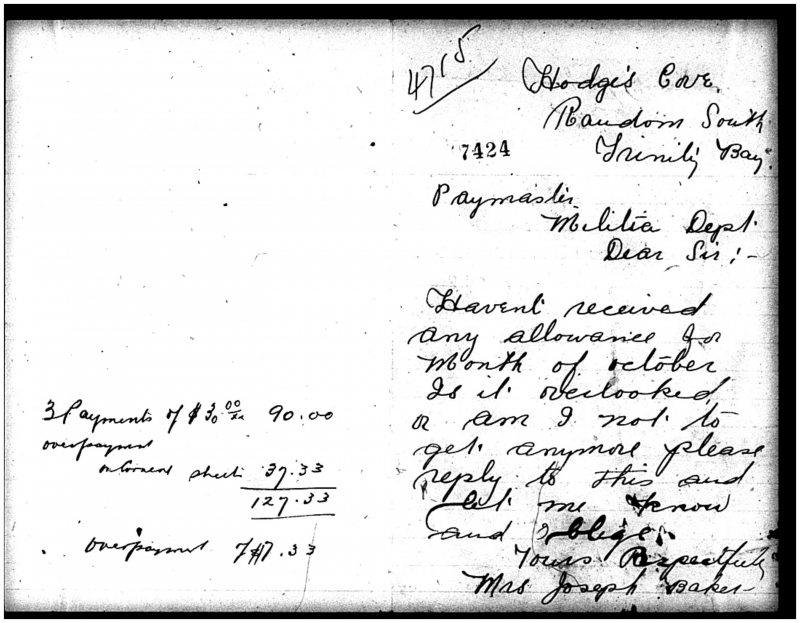 4715
Hodge's Cove.
Random South
7424
Trinity Bay.
Paymaster
Militia Dept.
Dear Sir;-
Havent received
any allowance for
Month of october
Is it overlooked
or am I not to
get anymore please
reply to this and
let me know
and oblige.
Yours Respectfully
Mrs Joseph Baker
3 Payments of $30 00/xx 90.00
overpayment
sheet 37.33
127.33
overpayment